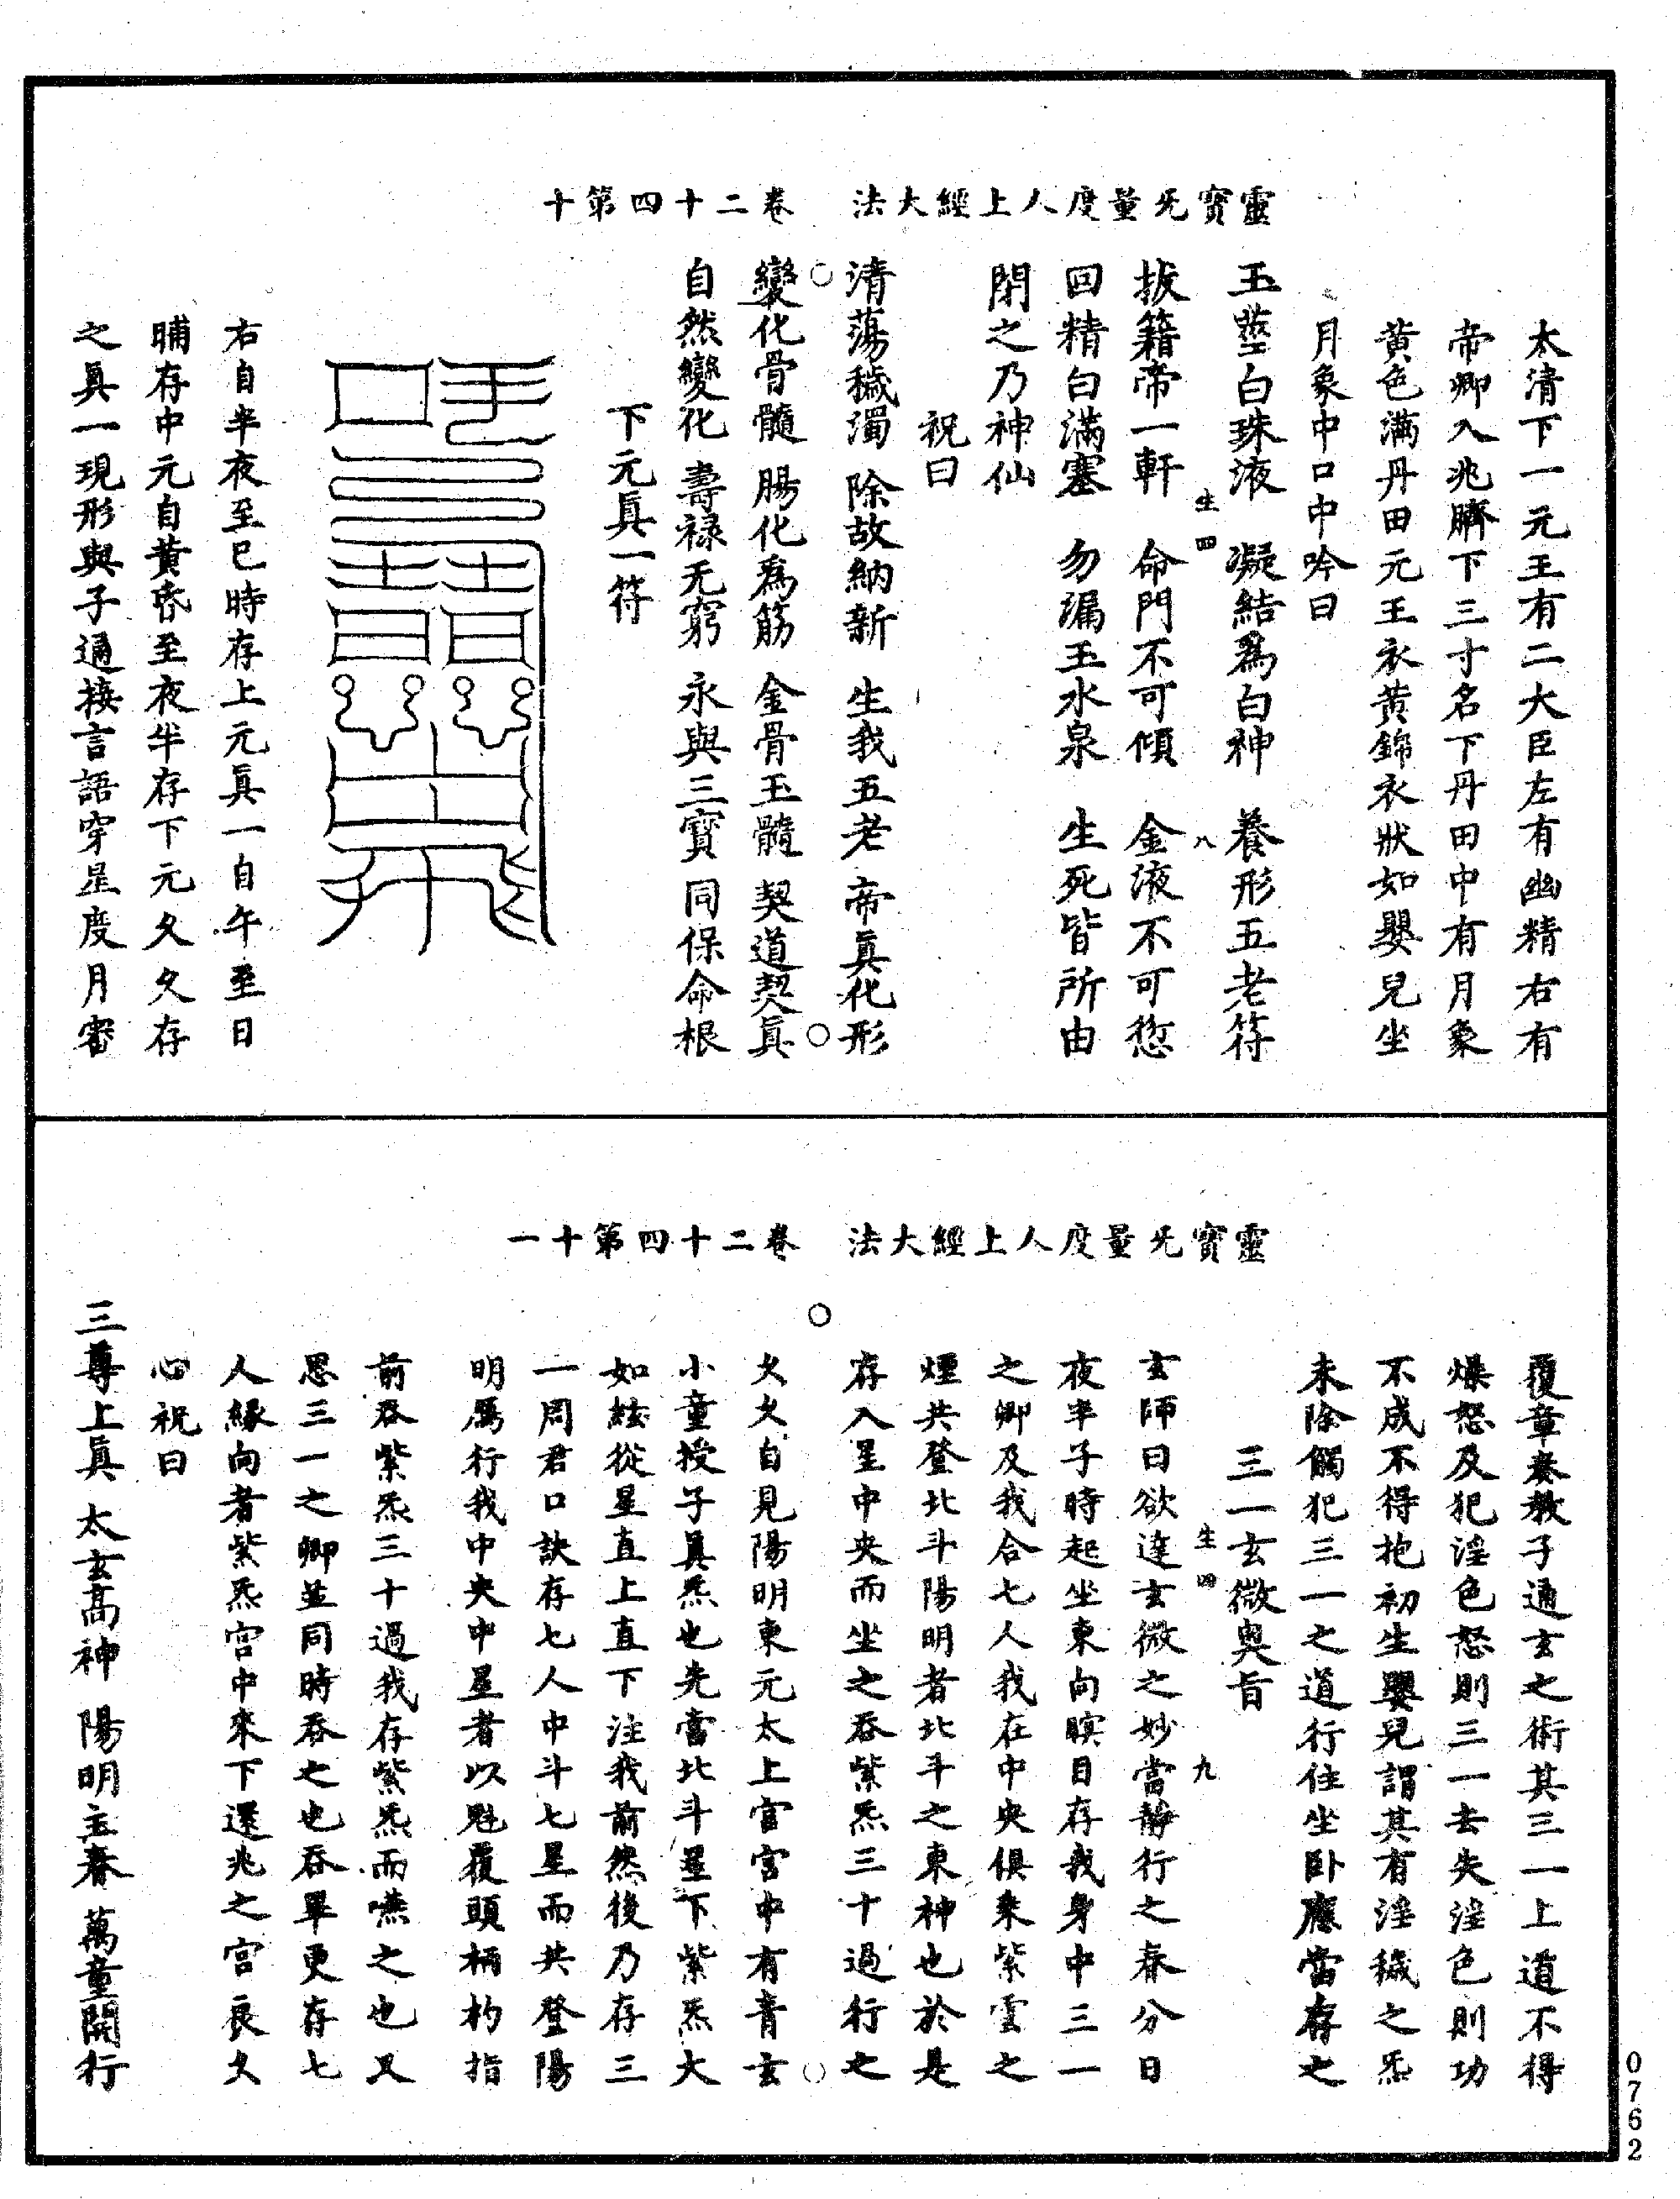 靈寶无量度人上經大法　卷二十四第十
太清下一元王有二大臣左有幽精右有
帝卿入兆臍下三寸名下丹田中有月象
黃色滿丹田元王衣黃錦衣狀如嬰兒坐
月象中口中吟曰
玉莖白珠液　凝結爲白神　養形五老符
生四　八
拔籍帝一軒　命門不可傾　金液不可愆
回精白滿塞　勿漏玉水泉　生死皆所由
閉之乃神仙
祝曰
清蕩穢濁　除故納新　生我五老　帝眞化形
變化骨髓　腸化爲筋　金骨玉髓　契道契眞
自然變化　壽祿无窮　永與三寶　同保命根
下元眞一符
右自半夜至巳時存上元眞一自午至日
晡存中元自黃昏至夜半存下元久久存
之眞一現形與子通接言語穿星度月審
靈寶无量度人上經大法　卷二十四第十一
覆章奏教子通玄之術其三一上道不得
爆怒及犯淫色怒則三一去失淫色則功
不成不得抱初生嬰兒謂其有淫穢之炁
未除觸犯三一之道行住坐卧應當存之
三一玄微奥旨
生四　九
玄師曰欲達玄微之妙當靜行之春分日
夜半子時起坐東向瞑目存我身中三一
之卿及我合七人我在中央俱乘紫雲之
煙共登北斗陽明者北斗之東神也於是
存入星中央而坐之吞紫炁三十過行之
久久自見陽明東元太上宮宮中有青玄
小童授子眞炁也先當北斗星下紫炁大
如絃從星直上直下注我前然後乃存三
一周君口訣存七人中斗七星而共登陽
明爲行我中央中星者以魁覆頭柄杓指
前吞紫炁三十過我存紫炁而嚥之也又
思三一之卿並同時吞之也吞畢更存七
人緣向者紫炁宮中來下還兆之宮良久
心祝曰
三尊上眞　太玄高神　陽明主春　萬童開行
0762